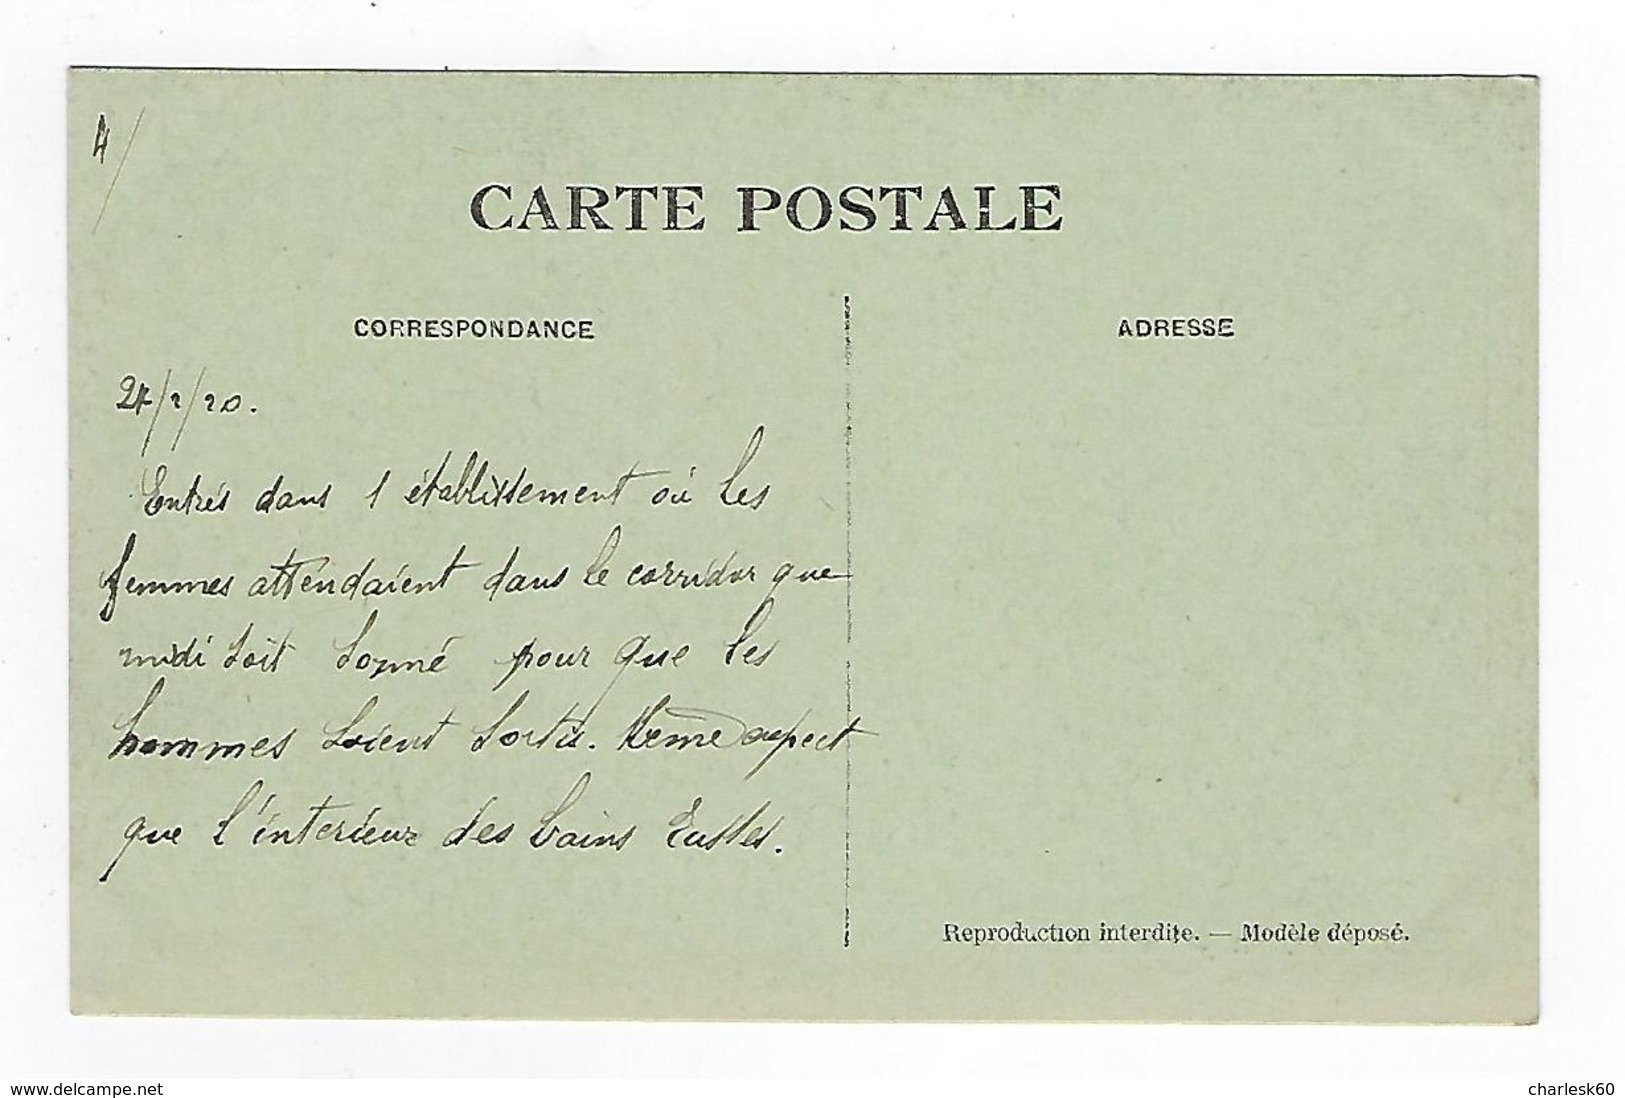 4/
CARTE POSTALE
CORRESPONDANCE
ADRESSE
24/2/20.
Entrés dans l établissement où les
femmes attendaient dans le corridor que
midi soit sonné pour que les
hommes soient sortis. Même aspect
que l'intérieur des bains
Reproduction interdite. — Modèle déposé.
www.delcampe.net
charlesk60